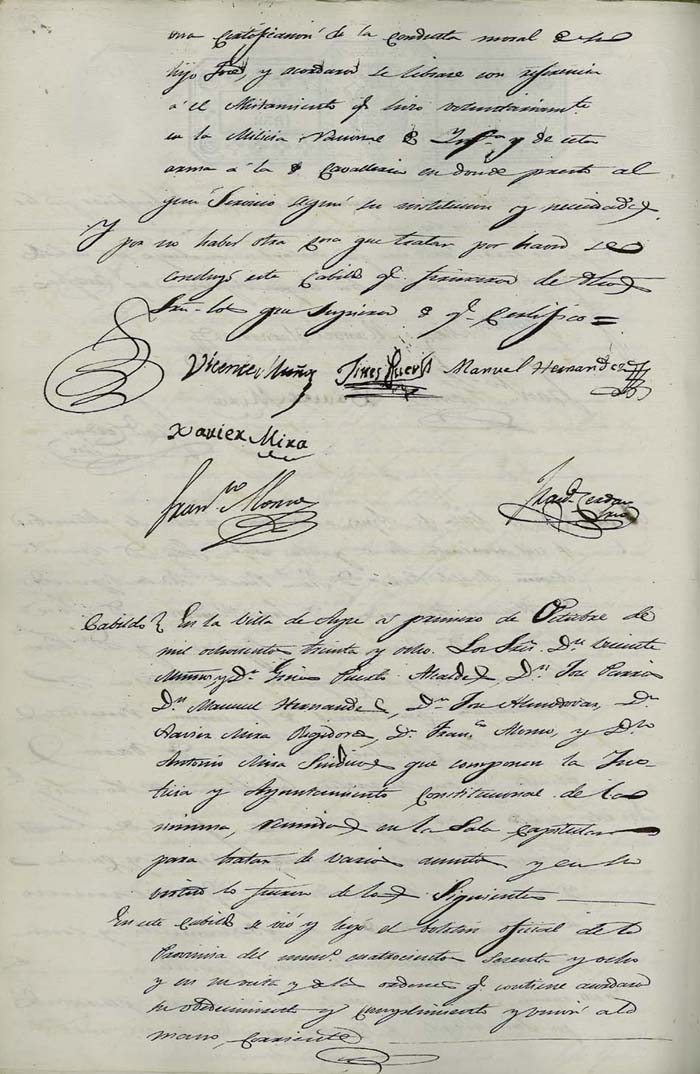 una Certificacion de la Conducta moral de su
hijo José, y acordaron se librase con referencia
á el Alistamiento qe hizo voluntariamte
en la Milicia Nacional de Infa y de esta
arma á la de Cavalleria en donde presta el
Servicio segun su institucion y necesidades
Y por no haber otra cosa que tratar por haora se
concluyó este Cabildo qe firmaron de dhos
Sres los que supieron de qe Certifico =
Vicente Muñoz Gines Puerto Manuel Hernandez
Xavier Mira
Franco Morno
Cabildo En la Villa de Aspe á primero de Octubre de
mil ochocientos treinta y ocho. Los Sres Dn Vicente
Muñoz, y Dn Gines Puerto Alcaldes, Dn José Pavia
Dn Manuel Hernandez, Dn José Almodovar, Dn
Xavier Mira Regidores, Dn Franco Morno, y Dn
Antonio Mira Sindicos que componen la Jus-
ticia y Ayuntamiento Constitucional de la
misma, reunidos en la Sala Capitular
para tratar de varios asuntos y en su
virtud lo fueron de los Siguientes
En este Cabildo se vió y leyó el boletin oficial de la
Provincia del numo cuatrocientos sesenta y ocho
y en su vista y de las ordenes qe contiene acordaron
su obedecimiento y cumplimiento y unir al de
mano, corriente